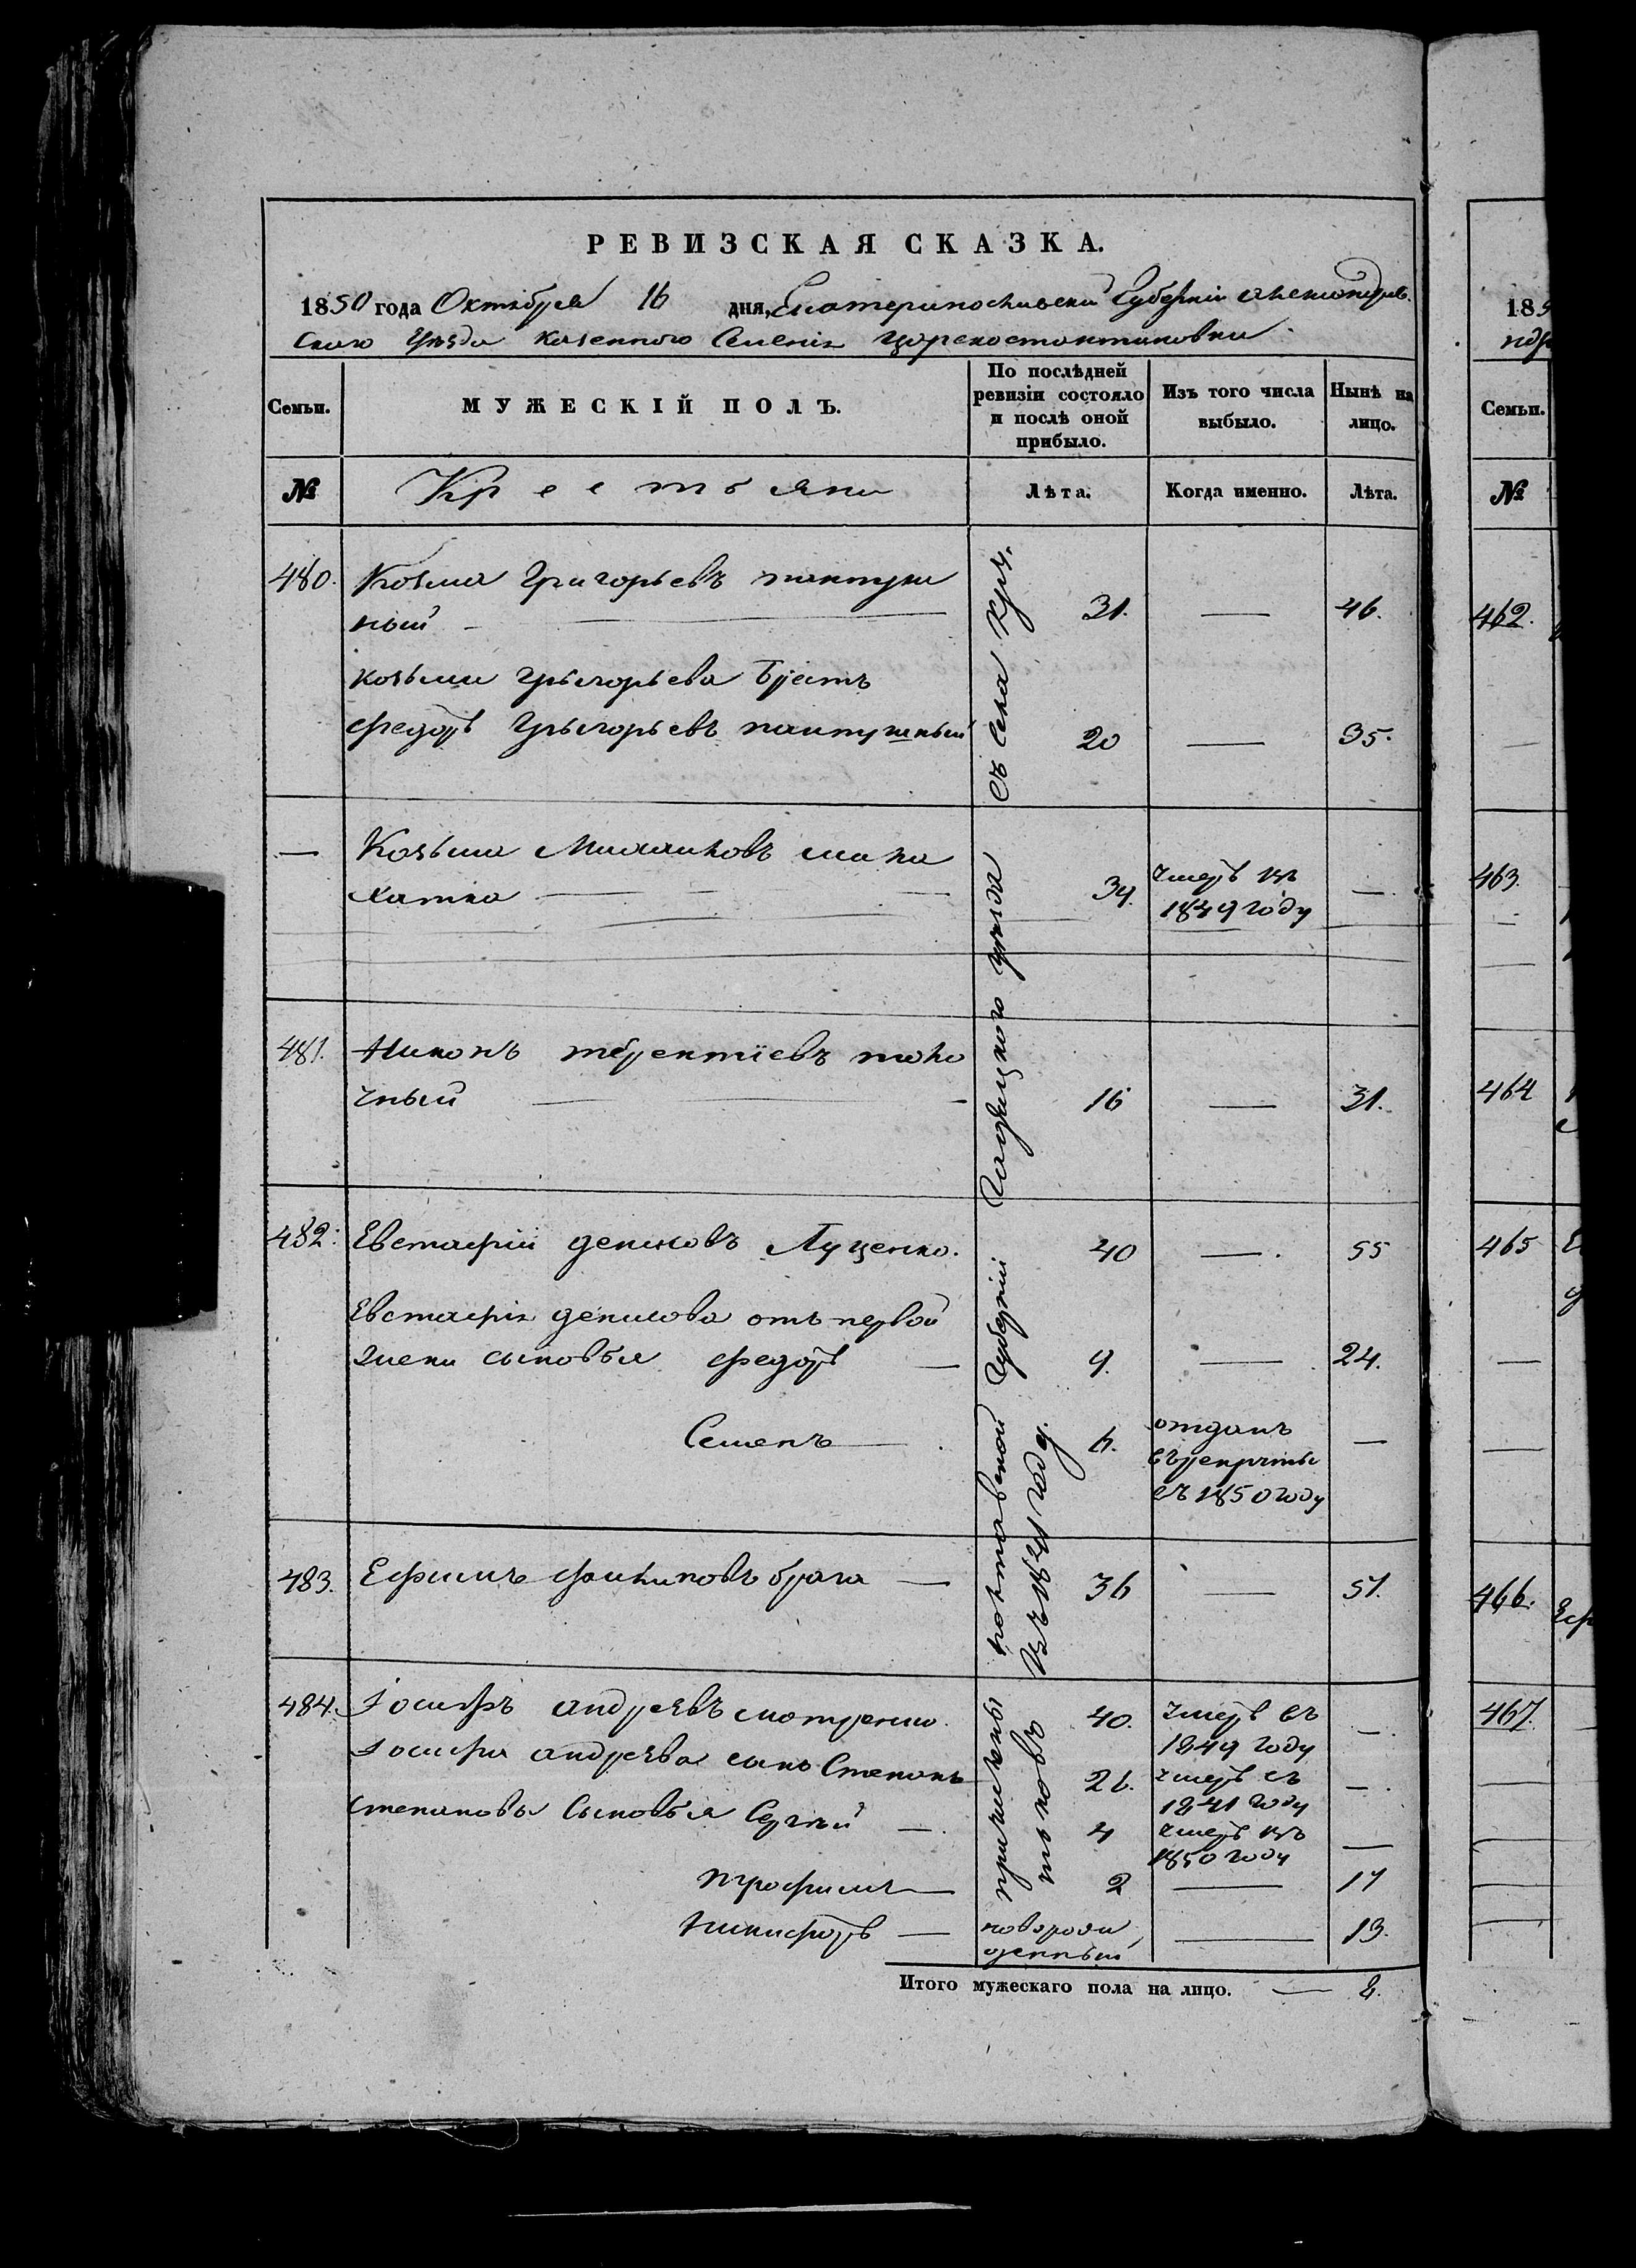 РЕВИЗСКАЯ СКАЗКА.
1850 года Октября 16 дня, Екатеринославской Губерніи Александров
скаго Уезда казенного Селенія Цареконстантиновки
Семьи.
МУЖЕСКІЙ ПОЛЪ.
По послѣдней ревизіи состояло и послѣ оной прибыло.
Изъ того числа выбыло.
Нынѣ на лицо.
№
Крестьяни
Лѣта.
Когда именно.
Лѣта.
480. Козьма Григорьевъ
ный — 31. — 46.
козьми Григорьева Братъ
Федоръ Григорьевъ 20 — 35.
— Козьма
хатка — 34. умеръ въ 1849 году —
481. Никонъ терентіевъ
чный — 16 — 31.
482. Евстафій денисовъ Луценко. 40 — 55
Евстафія денисова отъ первой
жени сыновья Федоръ — 9. — 24.
Семенъ — 6. отданъ въ рекруты въ 1850 году —
483. Ефимъ брага — 36 — 51.
484. Іосифъ андреевъ 40. умеръ въ 1849 году —
Іосифа андреева сынъ Степанъ 26. умеръ въ 1841 году —
Степановы Сыновья Сергей — 4 умеръ въ 1850 году —
трофимъ — 2 — 17
Никифоръ — новорожденный — 13.
съ села
уезда
полтавской Губерніи
въ году
причислены
Итого мужескаго пола на лицо. — 8.
185
Семьи.
№
462.
463.
464
465
466.
467.